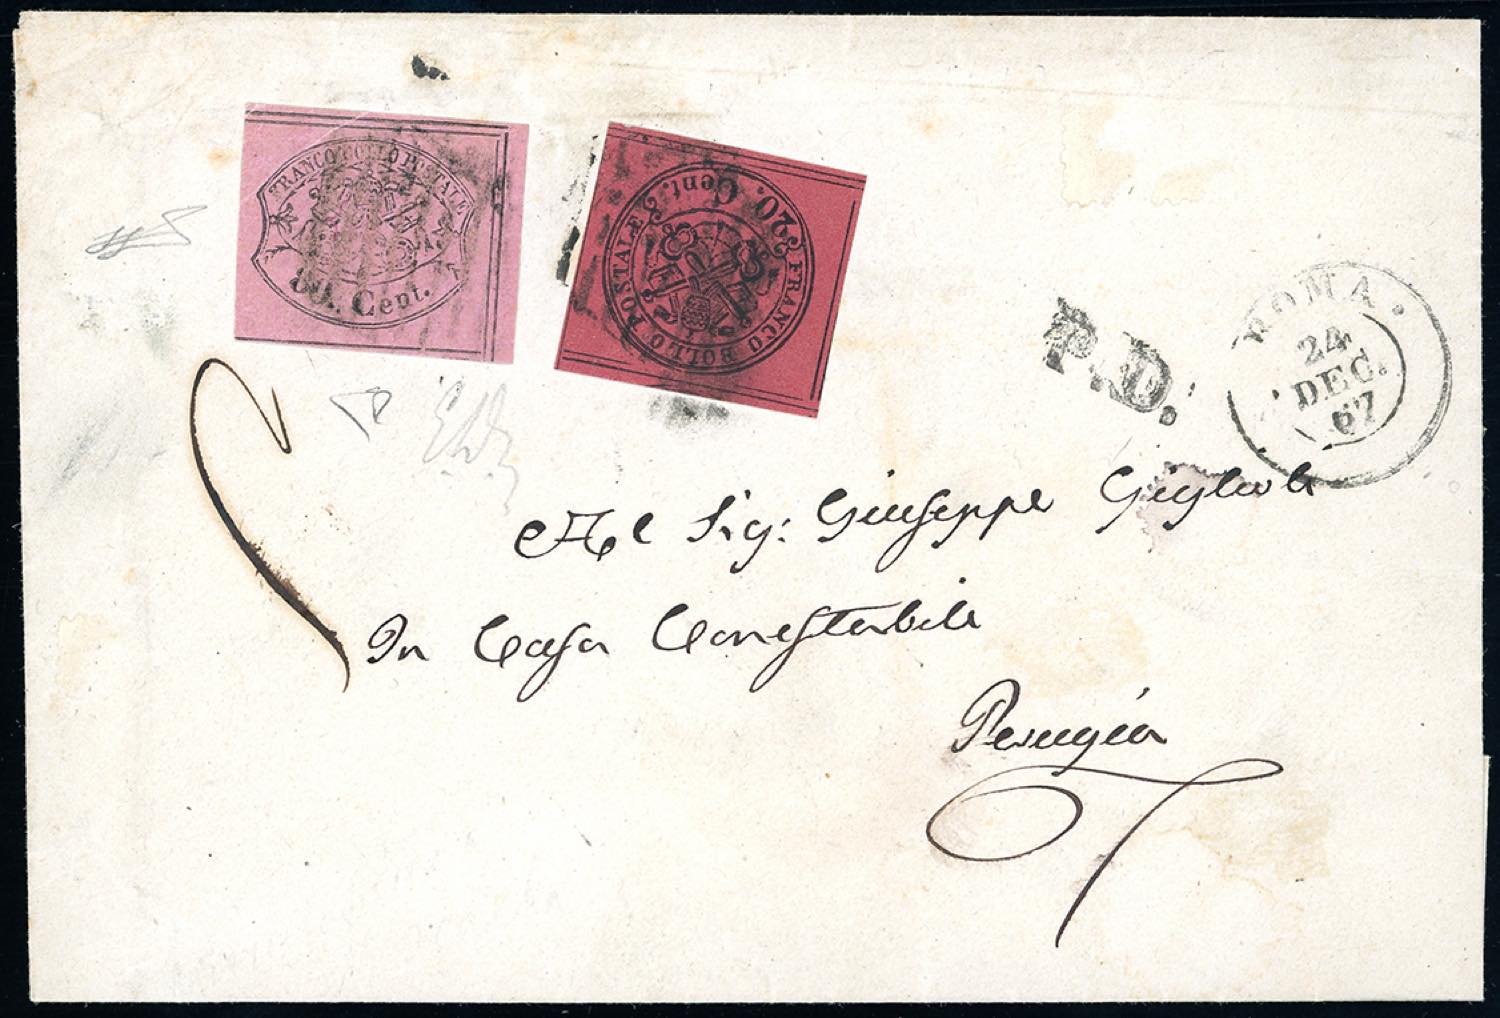 FRANCO BOLLO POSTALE
80. Cent.
FRANCO BOLLO POSTALE
20. Cent.
P.D.
ROMA
24
DEC.
67
Al Sig: Giuseppe Giglioli
In Casa Conestabile
Perugia